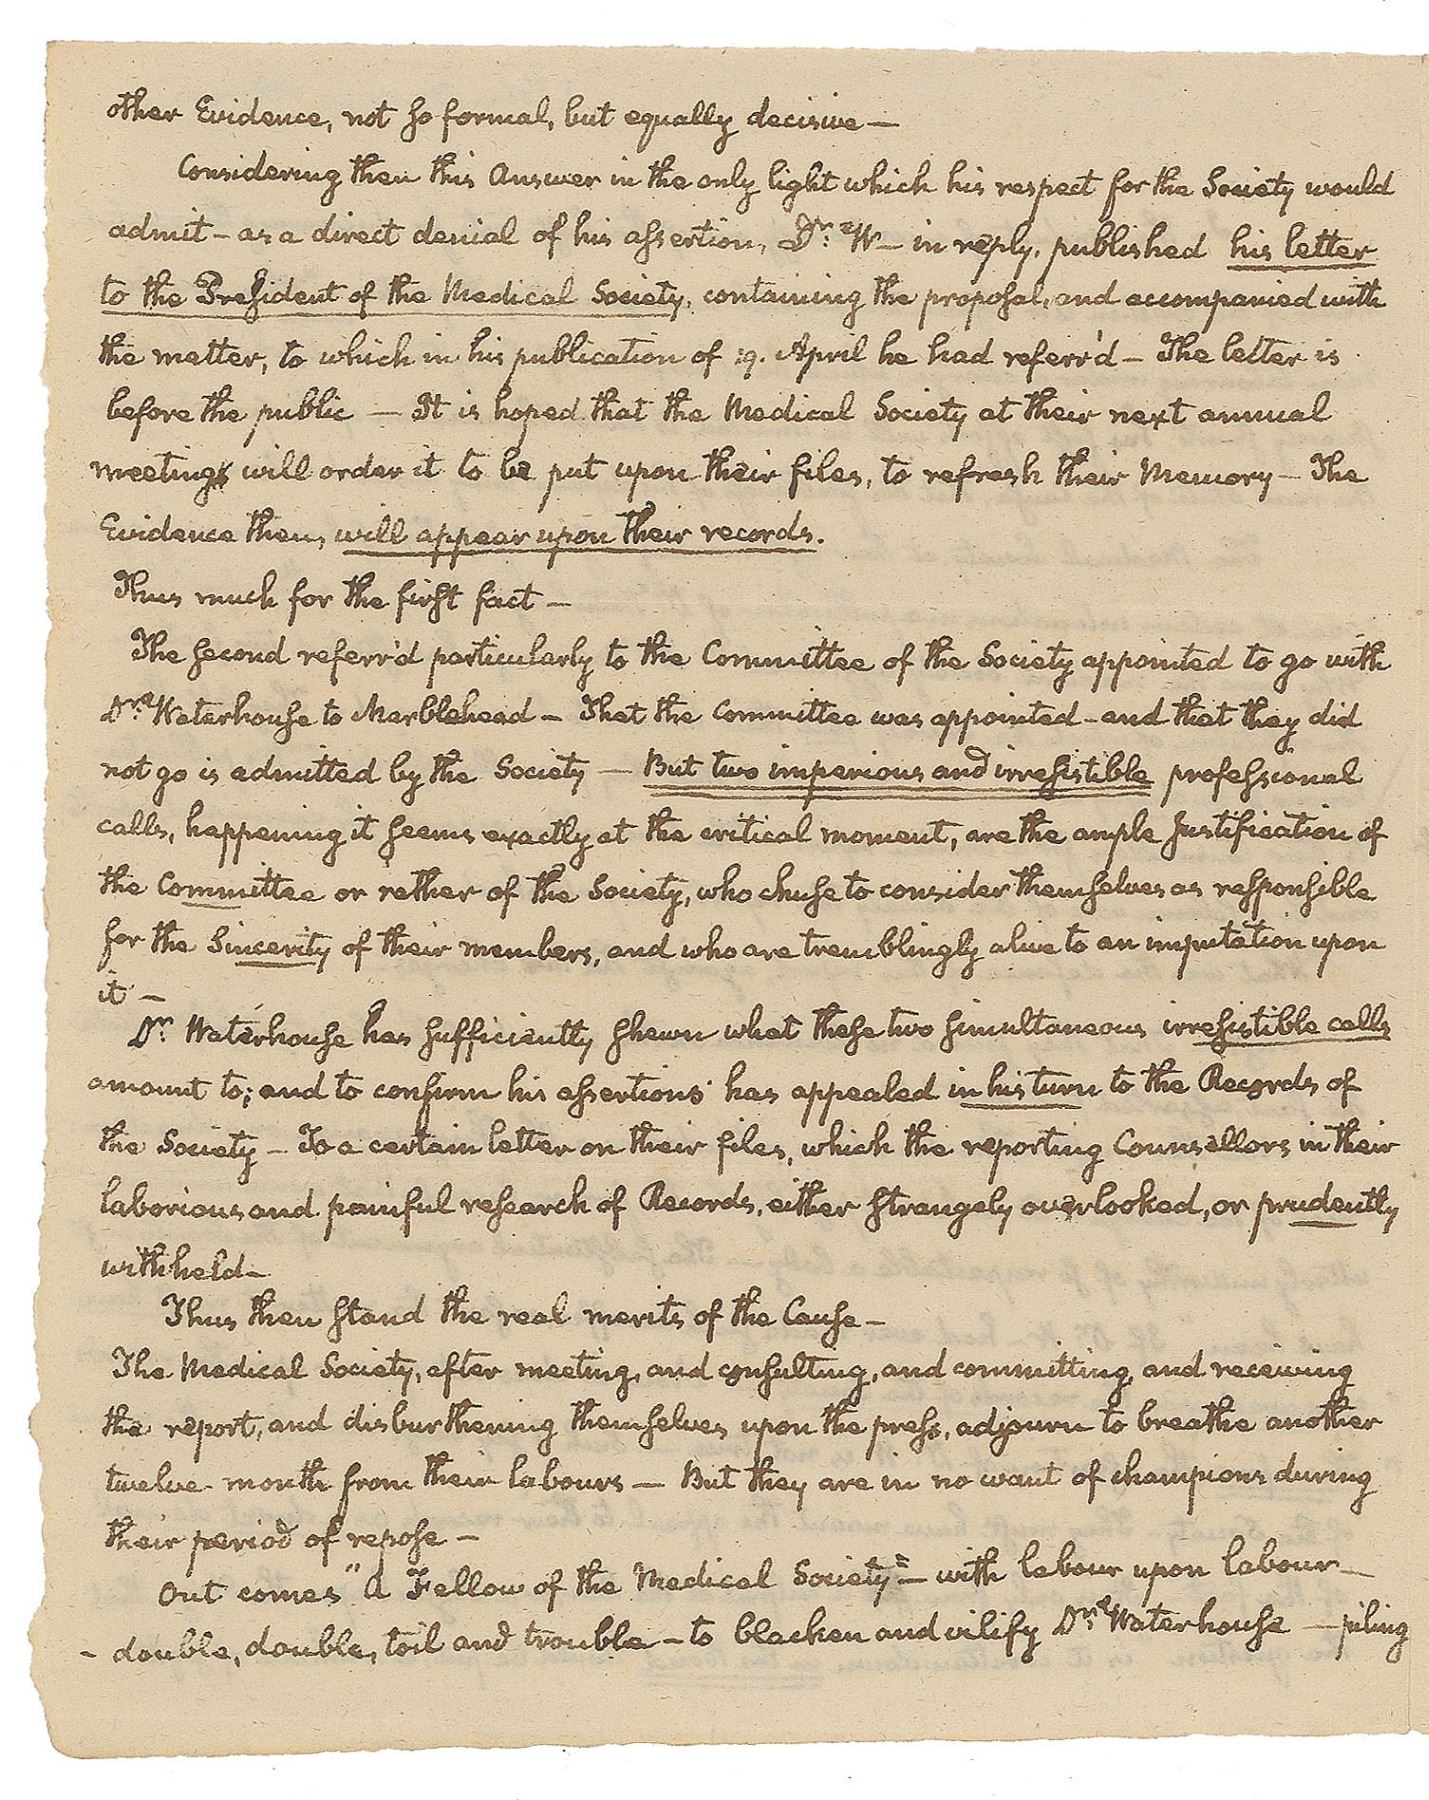 other Evidence, not so formal, but equally decisive —
Considering then this Answer in the only light which his respect for the Society would
admit — as a direct denial of his assertion, Dr. W — in reply, published his letter
to the President of the Medical Society, containing the proposal, and accompanied with
the matter, to which in his publication of 19. April he had referr'd — The letter is
before the public — It is hoped that the Medical Society at their next annual
meeting will order it to be put upon their files, to refresh their Memory — The
Evidence then, will appear upon their records.
Thus much for the first fact —
The second referr'd particularly to the Committee of the Society appointed to go with
Dr. Waterhouse to Marblehead — That the Committee was appointed — and that they did
not go is admitted by the Society — But two imperious and irresistible professional
calls, happening it seems exactly at the critical moment, are the ample justification of
the Committee or rather of the Society, who chuse to consider themselves as responsible
for the Sincerity of their members, and who are tremblingly alive to an imputation upon
it —
Dr. Waterhouse has sufficiently shewn what these two simultaneous irresistible calls
amount to; and to confirm his assertions has appealed in his turn to the Records of
the Society — To a certain letter on their files, which the reporting Counsellors in their
laborious and painful research of Records, either strangely overlooked, or prudently
withheld —
Thus then stand the real merits of the Cause —
The Medical Society, after meeting, and consulting, and committing, and receiving
the report, and disburthening themselves upon the press, adjourn to breathe another
twelve-month from their labours — But they are in no want of champions during
their period of repose —
Out comes "A Fellow of the Medical Society" — with labour upon labour —
- double, double, toil and trouble — to blacken and vilify Dr. Waterhouse — piling